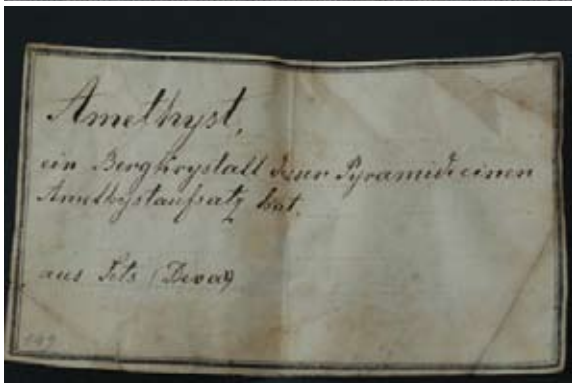 Amethyst,
ein Bergkrystall dessen Pyramide einen
Amethystaufsatz hat.
aus (Deva)
149